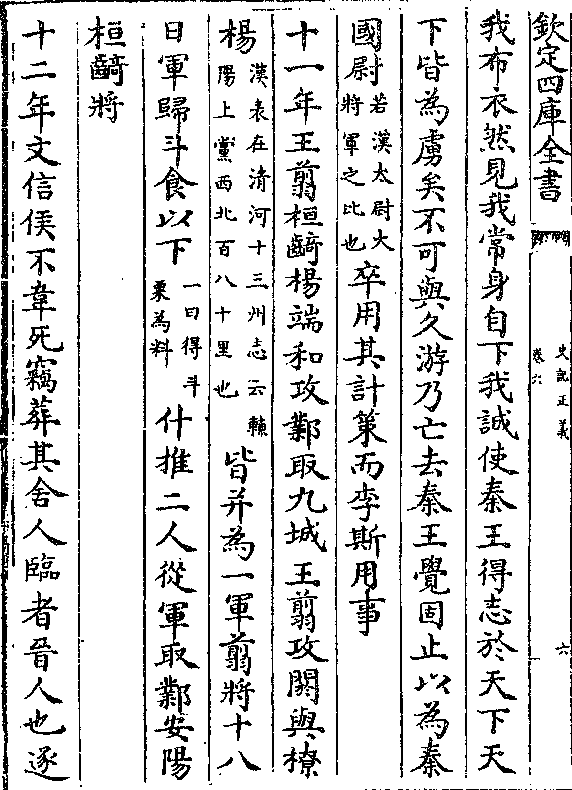 欽定四庫全書
史記正義
卷六
六
我布衣然見我常身自下我誠使秦王得志於天下天
下皆為虜矣不可與久游乃亡去秦王覺固止以為秦
國尉若漢太尉大將軍之比也卒用其計策而李斯用事
十一年王翦桓齮楊端和攻鄴取九城王翦攻閼與橑
楊漢表在清河十三州志云轑陽上黨西北百八十里也皆并為一軍翦將十八
日軍歸斗食以下一曰得斗粟為料什推二人從軍取鄴安陽
桓齮將
十二年文信侯不韋死竊葬其舍人臨者晉人也逐